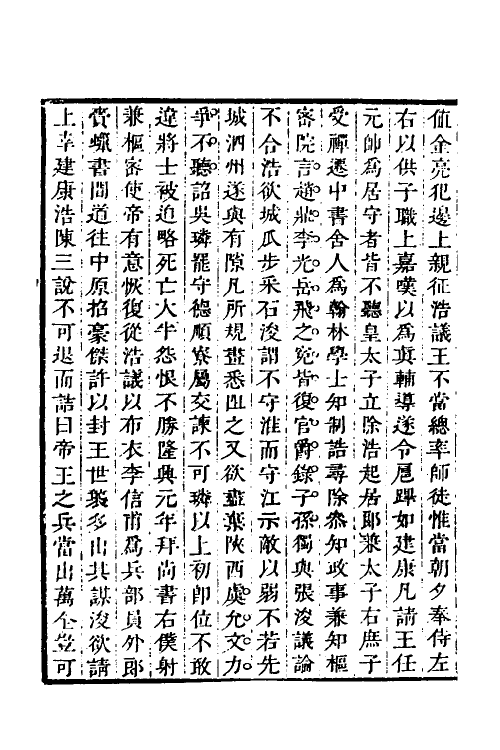 値金亮犯邊上親征浩議王不當總率師徒惟當朝夕奉侍左
右以供子職上嘉嘆以爲真輔導遂令扈蹕如建康凡請王任
元帥爲居守者皆不聽皇太子立除浩起居郎兼太子右庶子
受禪遷中書舍人爲翰林學士知制誥尋除叅知政事兼知樞
密院言趙鼎李光岳飛之寃皆復官爵錄子孫獨與張浚議論
不合浩欲城瓜步采石浚謂不守淮而守江示敵以弱不若先
城泗州遂與有隙凡所規畫悉阻之又欲盡棄陝西虞允文力
爭不聽詔吳璘罷守德順寮屬交諫不可璘以上初卽位不敢
違將士被迫略死亡大半怨恨不勝隆興元年拜尚書右僕射
兼樞密使帝有意恢復從浩議以布衣李信甫爲兵部員外郎
賫蠟書間道往中原招豪傑許以封王世襲多出其謀浚欲請
上幸建康浩陳三說不可退而詰曰帝王之兵當出萬全豈可